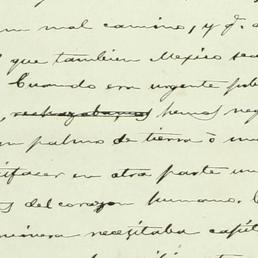 un mal camino, y q.e
que tambien Mexico sea
Cuando era urgente pob
, rechazabamos hemos neg
un palmo de tierra ó un
tifacer en otra parte un
s del corazon humano.
necesitaba capit